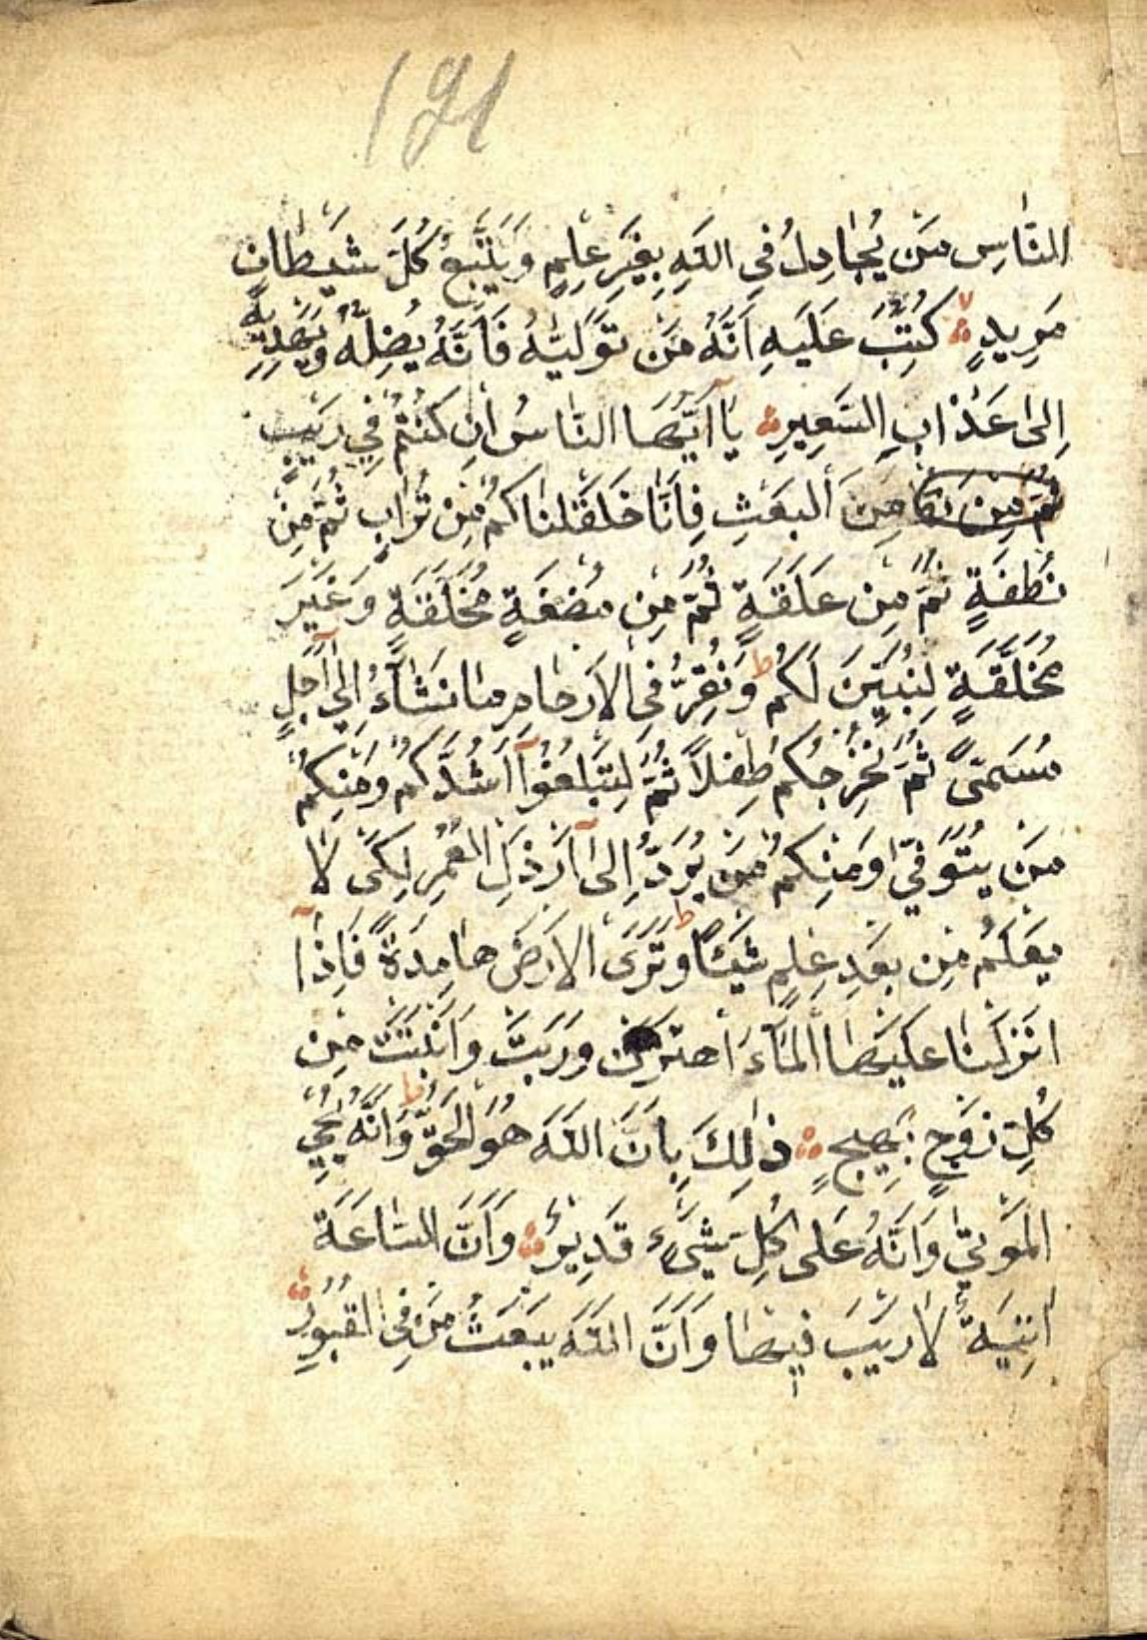 191
النَّاسِ مَنْ يُجَادِلُ فِي اللَّهِ بِغَيْرِ عِلْمٍ وَيَتَّبِعُ كُلَّ شَيْطَانٍ
مَرِيدٍ كُتِبَ عَلَيْهِ اَنَّهُ مَنْ تَوَلَّيهُ فَاَنَّهُ يُضِلُّهُ وَيَهْدِيهِ
اِلٰى عَذَابِ السَّعِيرِ يَآ اَيُّهَا النَّاسُ اِنْ كُنْتُمْ فِي رَيْبٍ
ثُمَّ مِنْ نط مِنَ الْبَعْثِ فَاِنَّا خَلَقْنَاكُمْ مِنْ تُرَابٍ ثُمَّ مِنْ
نُطْفَةٍ ثُمَّ مِنْ عَلَقَةٍ ثُمَّ مِنْ مُضْغَةٍ مُخَلَّقَةٍ وَغَيْرَ
مُخَلَّقَةٍ لِنُبَيِّنَ لَكُمْ ط وَنُقِرُّ فِي الْاَرْحَامِ مَا نَشَآءُ اِلٰى اَجَلٍ
مُسَمًّى ثُمَّ نُخْرِجُكُمْ طِفْلًا ثُمَّ لِتَبْلُغُوآ اَشُدَّكُمْ وَمِنْكُمْ
مَنْ يُتَوَفّٰى وَمِنْكُمْ مَنْ يُرَدُّ اِلٰٓى اَرْذَلِ الْعُمُرِ لِكَىْ لَا
يَعْلَمَ مِنْ بَعْدِ عِلْمٍ شَيْئًا ط وَتَرَى الْاَرْضَ هَامِدَةً فَاِذَآ
اَنْزَلْنَا عَلَيْهَا الْمَآءَ اهْتَزَّتْ وَرَبَتْ وَاَنْبَتَتْ مِنْ
كُلِّ زَوْجٍ بَهِيجٍ ذٰلِكَ بِاَنَّ اللَّهَ هُوَ الْحَقُّ ط وَاَنَّهُ يُحْيِ
الْمَوْتٰى وَاَنَّهُ عَلٰى كُلِّ شَىْءٍ قَدِيرٌ وَاَنَّ السَّاعَةَ
اٰتِيَةٌ لَا رَيْبَ فِيهَا وَاَنَّ اللَّهَ يَبْعَثُ مَنْ فِى الْقُبُورِ